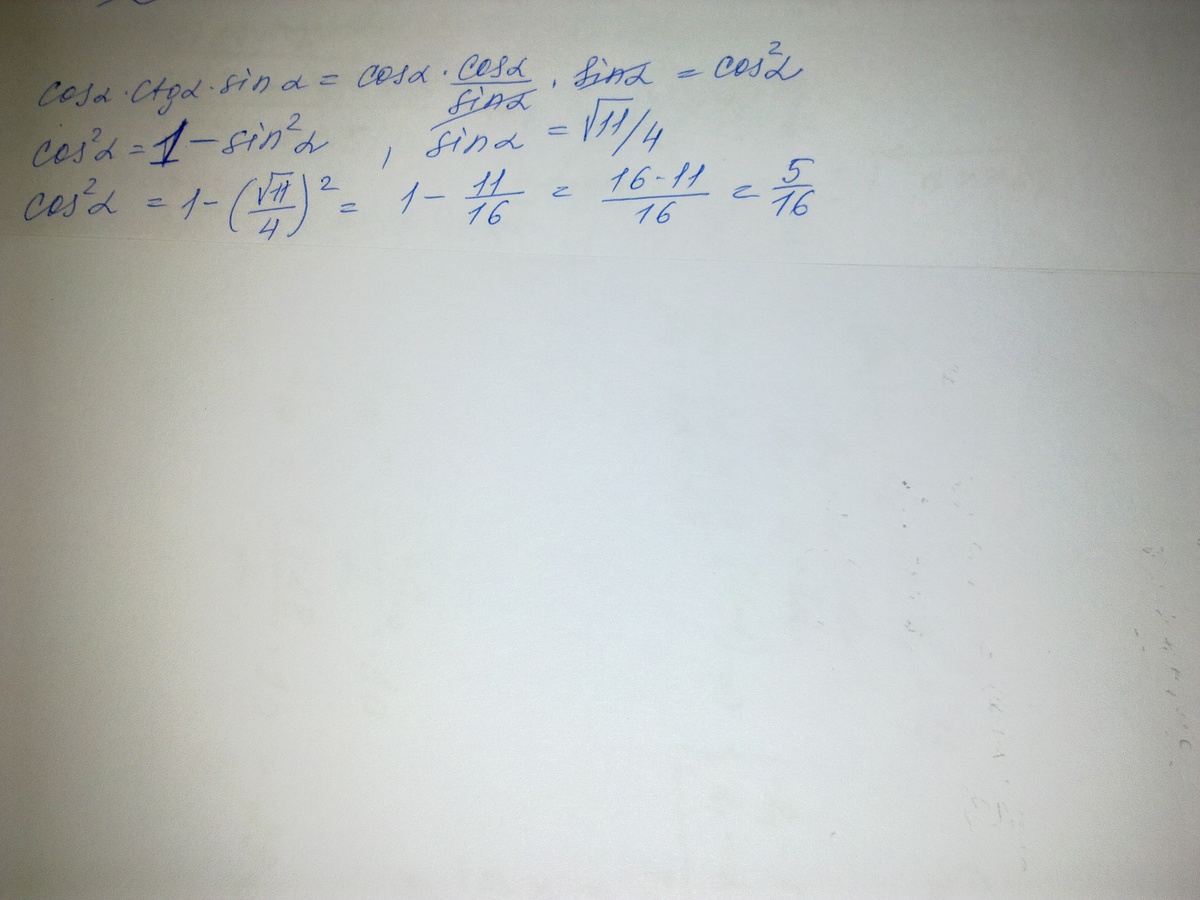 cosα · ctgα · sin α = cosα · cosα/sinα · sinα = cos²α
cos²α = 1 - sin²α , sinα = √11/4
cos²α = 1 - (√11/4)² = 1 - 11/16 = 16-11/16 = 5/16